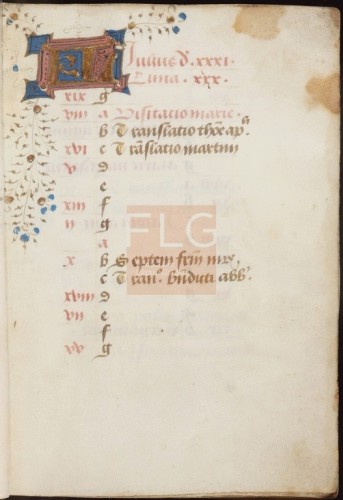 Julius d. xxxi.
Luna . xxx .
xix g
viii a Visitacio marie .
b Translatio thoe ap.
xvi c Traslatio martini
v d
e
xiii f
ii g
a
x b Septem frm mr.
c Tran. bnduti abb.
xviii d
vii e
f
xv g
FLG